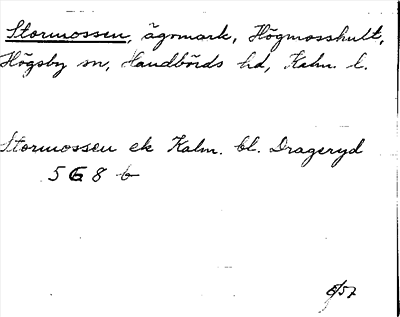 Stormossen, ägomark, Högmosshult,
Högsby sn, Handbörds hd, Kalm. l.
Stormossen ek Kalm. bl. Drageryd
5 G 8 b
6/57